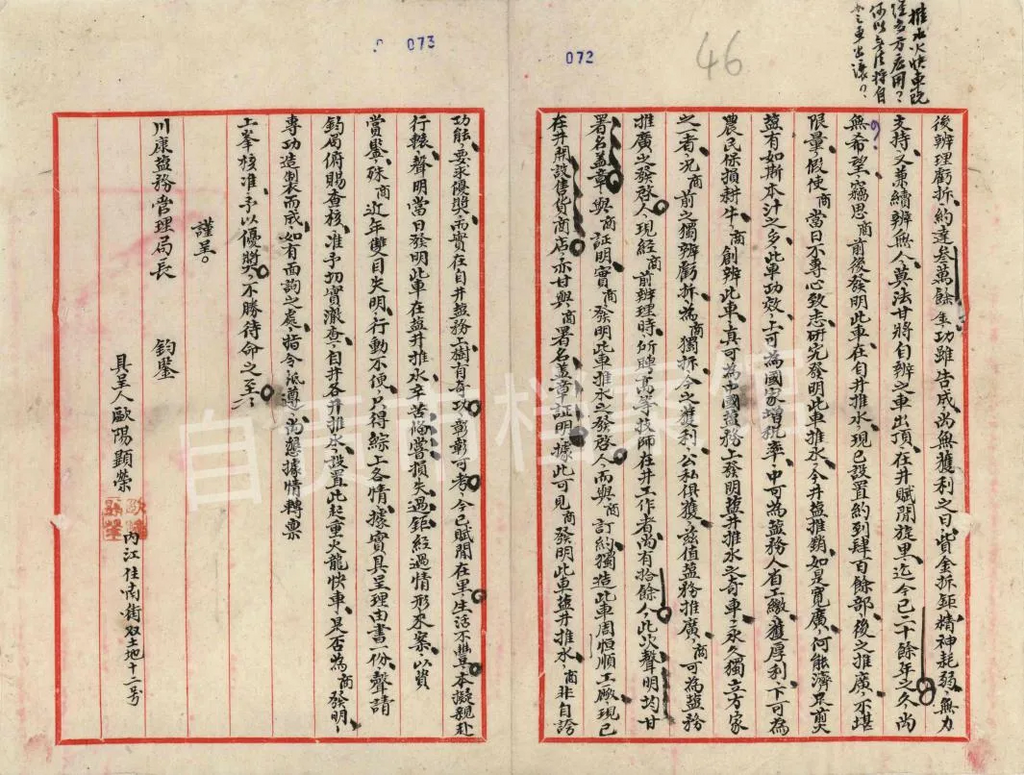 072
46
推水火快車既
後辦理虧折、約達叁萬餘、車功雖告成、尚無獲利之日、資金拆鉅、精神耗弱、無力
支持、又兼續辦無人、莫法甘將自辦之車出頂、在井賦閒旋里、迄今已二十餘年之久、尚
無希望、竊思商前後發明此車在自井推水、現已設置約到肆百餘部、後之推廣、不堪
限量、假使商當日不專心致志研究發明此車推水、今井鹽推銷、如是寬廣、何能濟足前
鹽有如斯本汁之多、此車功效、上可為國家增稅率、中可為鹽務人省工繳、獲厚利、下可為
農民保損耕牛、商創辦此車、真可為中國鹽務上發明鹽井推水之奇車、永久獨立方家
之一者、況商前之獨辦虧拆、為商獨拆、今之獲利、公私俱獲、茲值鹽務推廣、商可為鹽務
推廣之發啓人、現經商前辦理時所聘高等技師在井工作者、尚有拾餘人、此次聲明均甘
署名蓋章、與商証明實商發明此車推水之發啓人、而與商訂約獨造此車周恒順工廠、現已
在井開設售貨商店、亦甘與商署名蓋章証明、據此可見商發明此車鹽井推水、商非自誇
073
功能、要求優獎、而實在自井鹽務上樹有奇功、彰彰可考、今已賦閒在里、生活不豐、本擬親赴
行轅、聲明當日發明此車在鹽井推水辛苦備嘗、損失過鉅、經過情形來案、以資
賞鑒、殊商近年雙目失明、行動不便、只得綜上各情、據實具呈理由書一份、聲請
鈞局俯賜查核、准予切實澈查、自井各井推水、設置此起重火龍快車、是否為商發明、
專功造製、若或如有面詢之處、指令祗遵、尚懇據情轉禀
上峯核准、予以優獎、不勝待命之至、
謹呈。
川康鹽務管理局長 鈞鑒
具呈人歐陽顯榮 內江住南街双土地十二号
自贡市档案馆